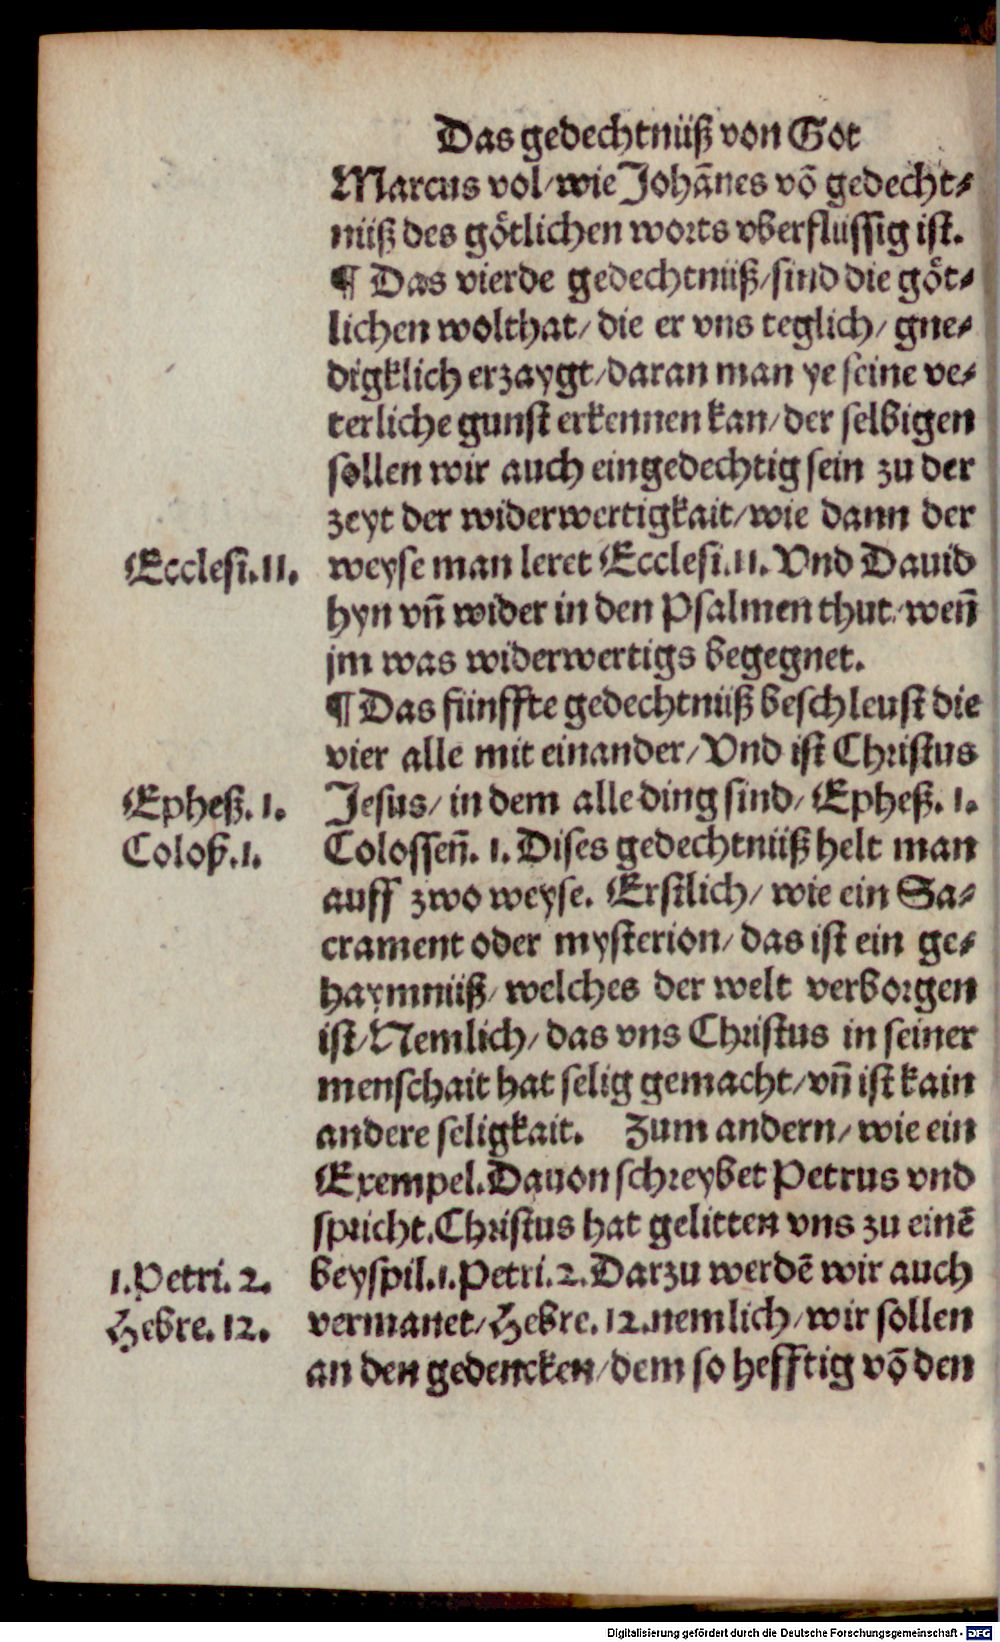 Das gedechtnüß von Got
Marcus vol/ wie Johãnes võ gedecht⸗
nüß des götlichen worts vberflüssig ist.
¶ Das vierde gedechtnüß/ sind die göt⸗
lichen wolthat/ die er vns teglich/ gne⸗
digklich erzaygt/ daran man ye seine ve⸗
terliche gunst erkennen kan/ der selbigen
sollen wir auch eingedechtig sein zu der
zeyt der widerwertigkait/ wie dann der
Ecclesi. 11. weyse man leret Ecclesi. 11. Vnd Dauid
hyn vñ wider in den Psalmen thut/ weñ
jm was widerwertigs begegnet.
¶ Das fünffte gedechtnüß beschleust die
vier alle mit einander/ Vnd ist Christus
Epheß. 1. Jesus/ in dem alle ding sind/ Epheß. 1.
Coloß. 1. Colosseñ. 1. Dises gedechtnüß helt man
auff zwo weyse. Erstlich/ wie ein Sa⸗
crament oder mysterion/ das ist ein ge⸗
haymnüß/ welches der welt verborgen
ist/ Nemlich/ das vns Christus in seiner
menschait hat selig gemacht/ vñ ist kain
andere seligkait. Zum andern/ wie ein
Exempel. Dauon schreybet Petrus vnd
spricht. Christus hat gelitten vns zu einẽ
1. Petri. 2. beyspil. 1. Petri. 2. Darzu werdẽ wir auch
Hebre. 12. vermanet/ Hebre. 12. nemlich/ wir sollen
an den gedencken/ dem so hefftig võ den
Digitalisierung gefördert durch die Deutsche Forschungsgemeinschaft - DFG